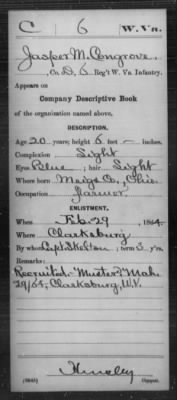 C 6 W. Va.
Jasper M. Congrove,
Co. D, 6 Reg't W. Va. Infantry.
Appears on
Company Descriptive Book
of the organization named above.
DESCRIPTION.
Age 20 years; height 6 feet — inches.
Complexion Light
Eyes Blue; hair Light
Where born Meigs Co., Ohio
Occupation farmer
ENLISTMENT.
When Feb. 29, 1864.
Where Clarksburg
By whom Capt. Skelton; term 3 y'rs.
Remarks:
Recruited. Must'd Mch.
29/64, Clarksburg, W.V.
Hinsley
Copyist.